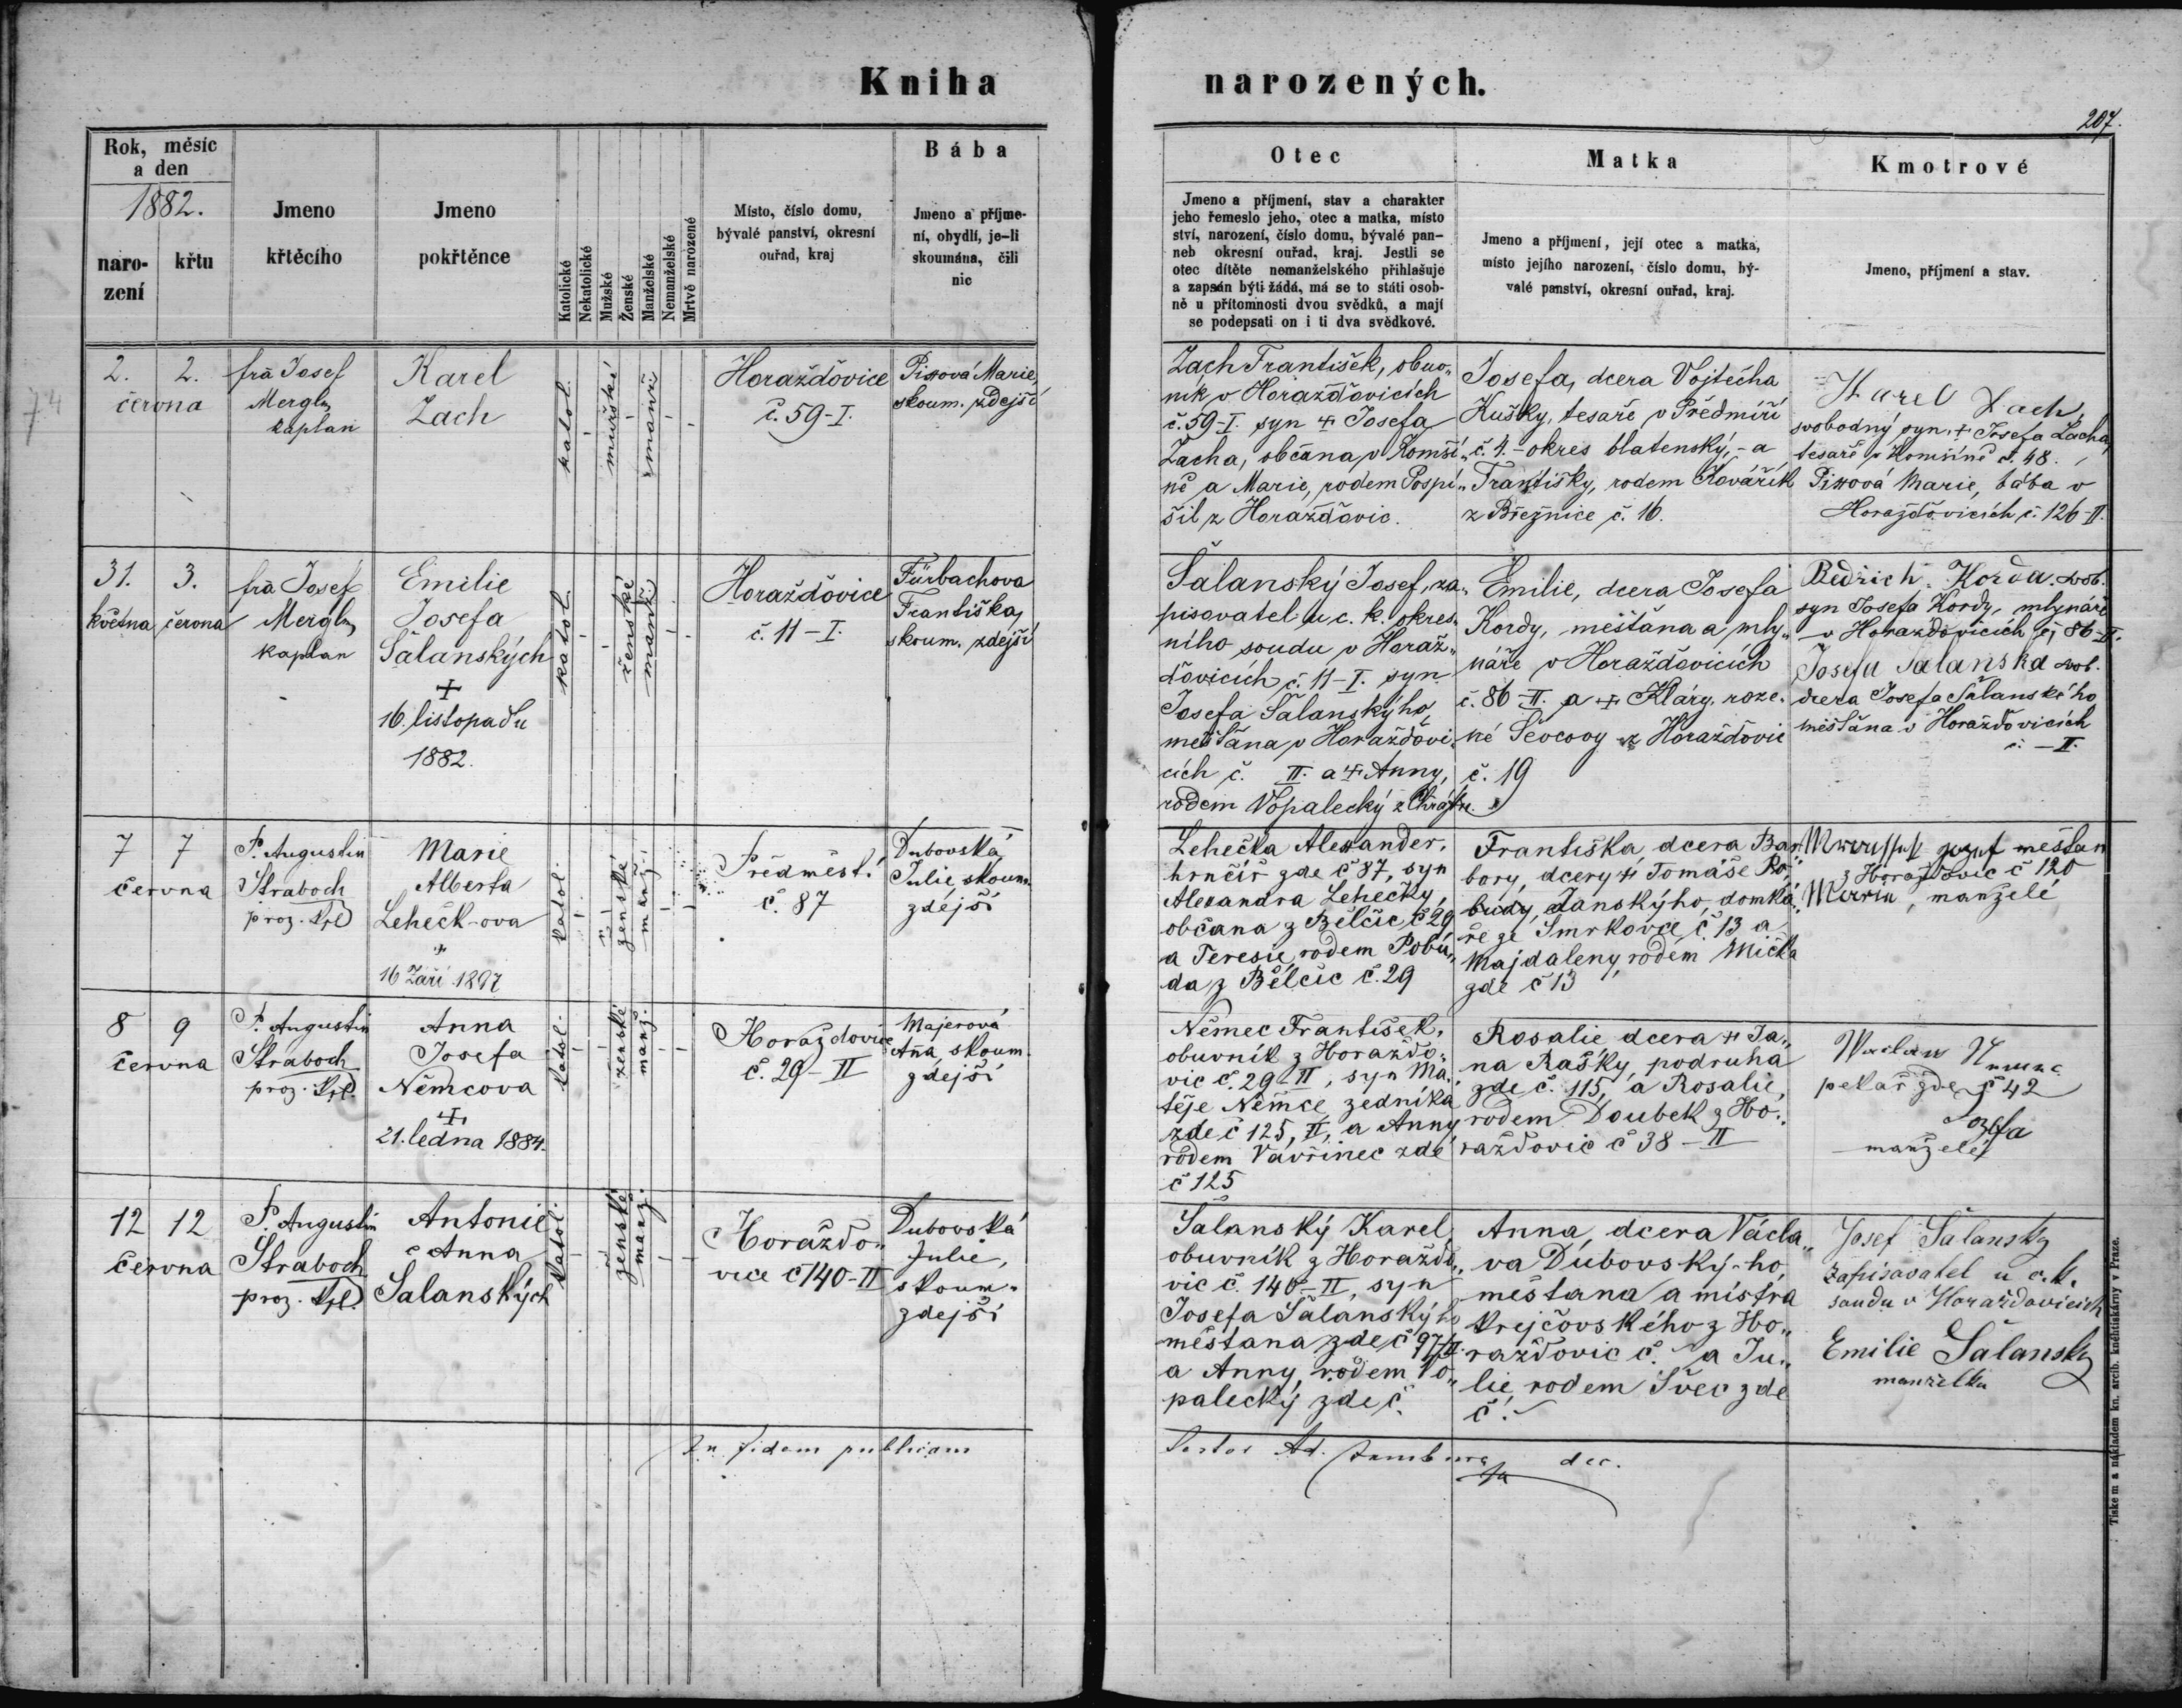 Kniha narozených.
207.
Rok, měsíc
a den
1882.
naro-
zení
křtu
Jmeno
křtěcího
Jmeno
pokřtěnce
Katolické
Nekatolické
Mužské
Ženské
Manželské
Nemanželské
Mrtvě narozené
Místo, číslo domu,
bývalé panství, okresní
ouřad, kraj
Bába
Jmeno a příjme-
ní, obydlí, je-li
skoumána, čili
nic
Otec
Jmeno a příjmení, stav a charakter
jeho řemeslo jeho, otec a matka, místo
ství, narození, číslo domu, bývalé pan-
neb okresní ouřad, kraj. Jestli se
otec dítěte nemanželského přihlašuje
a zapsán býti žádá, má se to státi osob-
ně u přítomnosti dvou svědků, a mají
se podepsati on i ti dva svědkové.
Matka
Jmeno a příjmení, její otec a matka,
místo jejího narození, číslo domu, bý-
valé panství, okresní ouřad, kraj.
Kmotrové
Jmeno, příjmení a stav.
74
2. 2.
června
frà Josef
Mergl
kaplan
Karel
Zach
katol.
mužské
manž
Horažďovice
č. 59-I.
Marie,
skoum. zdejší
Zach František, obuv„
ník v Horažďovicích
č. 59-I. syn + Josefa
Zacha, občana v Komši„
ně a Marie, rodem Pospí„
šil z Horažďovic.
Josefa, dcera Vojtěcha
Kušky, tesaře v Předmíří
č. 4. - okres blatenský, - a
Františky, rodem Kovářík
z Březnice č. 16.
Karel Zach,
svobodný syn + Josefa Zacha,
tesaře v Komšíně č. 48.
Marie, bába v
Horažďovicích č. 126-II.
31. 3.
května června
frà Josef
Mergl
kaplan
Emilie
Josefa
Šalanských
+
16. listopadu
1882.
katol.
ženské
manž
Horažďovice
č. 11-I.
Fürbachova
Františka,
skoum. zdejší
Šalanský Josef, za„
pisovatel u c. k. okres„
ního soudu v Horaž„
ďovicích č. 11-I. syn
Josefa Šalanskýho
měšťana v Horažďovi„
cích č. II. a + Anny,
rodem Vopalecký z
Emilie, dcera Josefa
Kordy, měšťana a mly„
náře v Horažďovicích
č. 86-II. a + Kláry, roze.
né Ševcovy z Horažďovic
č. 19
Bedřich Korda. svob.
syn Josefa Kordy, mlynáře
v Horažďovicích č. 86-II.
Josefa Salanska svob.
dcera Josefa Šalanského
měšťana v Horažďovicích
č. -II.
7 7
června
P. Augustin
Straboch
proz. kpl
Marie
Alberta
Lehečk-ova
+
16 Září 1897
katol.
ženské
manž.
Předměstí
č. 87
Dubovská
Julie, skoum.
zdejší
Lehečka Alexander,
hrnčíř zde č 87, syn
Alexandra Lehečky,
občana z Bělčic č 29
a Teresie, rodem Pobu„
da z Bělčic č. 29
Františka, dcera Bar„
bory, dcery + Tomáše Po„
budy, Janskýho, domká„
ře ze Smrkovce č. 13 a
Majdaleny, rodem Mička
zde č 13
Jozef měštan
z Horažďovic č 120
Marie, manželé
8 9
června
P. Augustin
Straboch
proz. kpl.
Anna
Josefa
Němcova
+
21. ledna 1884.
katol.
ženské
manž.
Horažďovice
č. 29-II
Majerová
Aña, skoum.
zdejší
Němec František,
obuvník z Horažďo„
vic č. 29-II, syn Ma„
těje Němce, zedníka
zde č 125, II, a Anny
rodem Vavřinec zde
č 125
Rosalie dcera + Ja„
na Rašky, podruha
zde č. 115, a Rosalie,
rodem Doubek z Ho„
ražďovic č 38-II
Waclaw
pekař zde č 42
Jozefa
manželé
12 12
června
P. Augustin
Straboch
proz. kpl.
Antonie
Anna
Šalanských
katol.
ženské
manž.
Horažďo„
vice č 140-II
Dubovská
Julie,
skoum.
zdejší
Šalanský Karel,
obuvník z Horažďo„
vic č. 140-II, syn
Josefa Šalanskýho
měštana zde č 97/II
a Anny, rodem Vo„
palecký zde č.
Anna, dcera Václa„
va Dubovský-ho,
měštana a mistra
krejčovského z Ho„
ražďovic č. a Ju„
lie, rodem Švec zde
č.
Josef Šalanský
Zapisovatel u c. k.
soudu v Horažďovicích
Emilie Šalanský
manželka
In fidem publicam
Ad. dec.
Tiskem a nákladem kn. arcib. knihtiskárny v Praze.